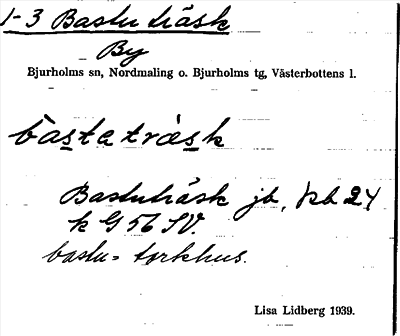 1-3 Bastuträsk
By
Bjurholms sn, Nordmaling o. Bjurholms tg, Västerbottens l.
bastatræsk
Bastuträsk jb, kb 24
k G 56 SV.
bastu = torkhus.
Lisa Lidberg 1939.